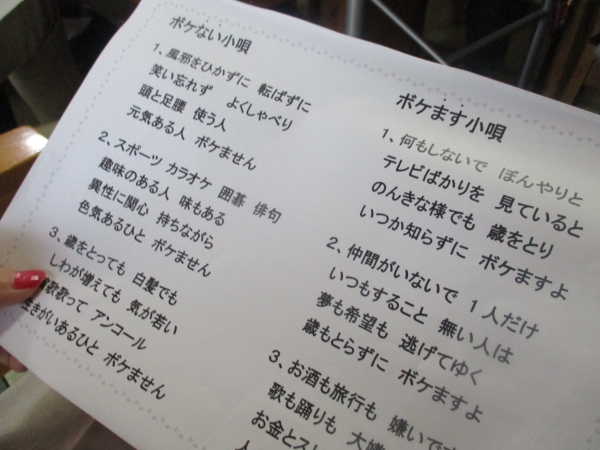 ボケない小唄
1、風邪をひかずに 転ばずに
笑い忘れず よくしゃべり
頭と足腰 使う人
元気ある人 ボケません
2、スポーツ カラオケ 囲碁 俳句
趣味のある人 味もある
異性に関心 持ちながら
色気あるひと ボケません
3、歳をとっても 白髪でも
しわが増えても 気が若い
歌歌って アンコール
生きがいあるひと ボケません
ボケます小唄
1、何もしないで ぼんやりと
テレビばかりを 見ていると
のんきな様でも 歳をとり
いつか知らずに ボケますよ
2、仲間がいないで 1人だけ
いつもすること 無い人は
夢も希望も 逃げてゆく
歳もとらずに ボケますよ
3、お酒も旅行も 嫌いで
歌も踊りも 大嫌
お金とス